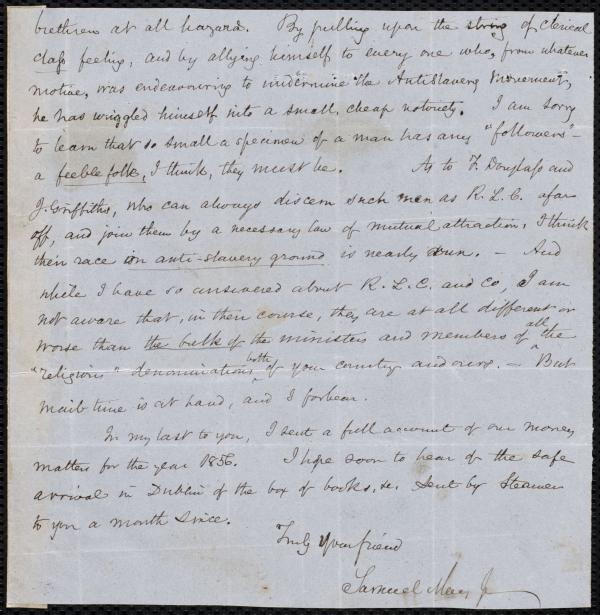 brethren at all hazard. By pulling upon the string of clerical
class feeling, and by allying himself to every one who, from whatever
motive, was endeavouring to undermine the Antislavery Movement,
he has wriggled himself into a small, cheap notoriety. I am sorry
to learn that so small a specimen of a man has any "followers" –
a feeble folk, I think, they must be. As to F. Douglass and
J. Griffiths, who can always discern such men as R. L. C. afar
off, and join them by a necessary law of mutual attraction, I think
their race on anti-slavery ground is nearly run. – And
while I have so answered about R. L. C. and Co, I am
not aware that, in their course, they are at all different or
worse than the bulk of the ministers and members of all the
"religious" denominations both of your country and ours. – But
mail time is at hand, and I forbear.
In my last to you, I sent a full account of our money
matters for the year 1856. I hope soon to hear of the safe
arrival in Dublin of the box of books, &c. sent by Steamer
to you a month since.
Truly your friend
Samuel May Jr